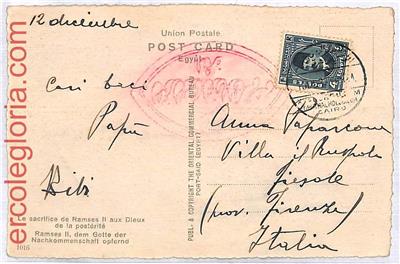 12 dicembre
Union Postale
POST CARD
Egypt
Cari baci
Papà
Bibi
Anna
Villa il
Fiesole
(prov. Firenze)
Italia
Le sacrifice de Ramses II aux Dieux
de la postérité
Ramses II, dem Gotte der
Nachkommenschaft opfernd
1016
PUBL. & COPYRIGHT THE ORIENTAL COMMERCIAL BUREAU
PORT-SAID (EGYPT)
CAIRO
ercolegloria.com